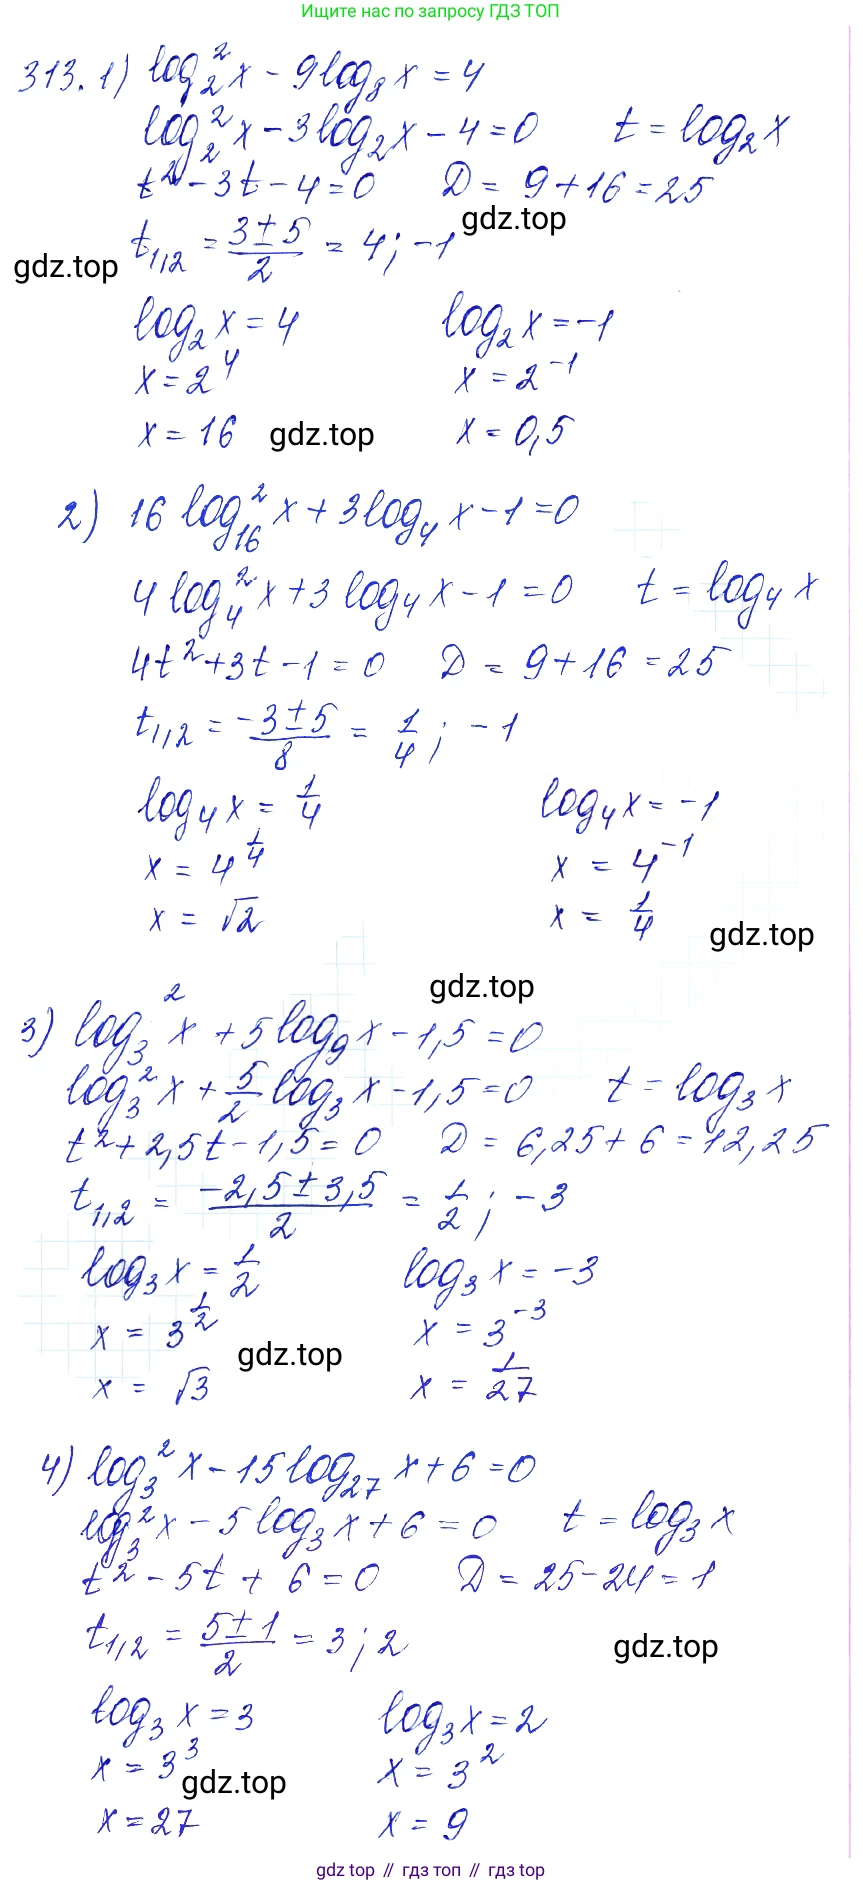 Ищите нас по запросу ГДЗ ТОП
313. 1) log₂²x - 9log₈x = 4
log₂²x - 3log₂x - 4 = 0   t = log₂x
t² - 3t - 4 = 0   D = 9 + 16 = 25
gdz.top
t₁,₂ = (3±5)/2 = 4; -1
gdz.top
log₂x = 4   log₂x = -1
x = 2⁴   x = 2⁻¹
x = 16   gdz.top   x = 0,5
2) 16 log₁₆²x + 3log₄x - 1 = 0
4 log₄²x + 3 log₄x - 1 = 0   t = log₄x
4t² + 3t - 1 = 0   D = 9 + 16 = 25
t₁,₂ = (-3±5)/8 = 1/4; -1
log₄x = 1/4   log₄x = -1
x = 4^(1/4)   x = 4⁻¹
x = √2   x = 1/4   gdz.top
gdz.top
3) log₃²x + 5log₉x - 1,5 = 0
log₃²x + 5/2 log₃x - 1,5 = 0   t = log₃x
t² + 2,5t - 1,5 = 0   D = 6,25 + 6 = 12,25
t₁,₂ = (-2,5±3,5)/2 = 1/2; -3
log₃x = 1/2   log₃x = -3
x = 3^(1/2)   x = 3⁻³
gdz.top
x = √3   x = 1/27
4) log₃²x - 15log₂₇x + 6 = 0
log₃²x - 5log₃x + 6 = 0   t = log₃x
t² - 5t + 6 = 0   D = 25 - 24 = 1
t₁,₂ = (5±1)/2 = 3; 2   gdz.top
log₃x = 3   log₃x = 2
x = 3³   x = 3²
gdz.top
x = 27   x = 9
gdz top // гдз топ // gdz top